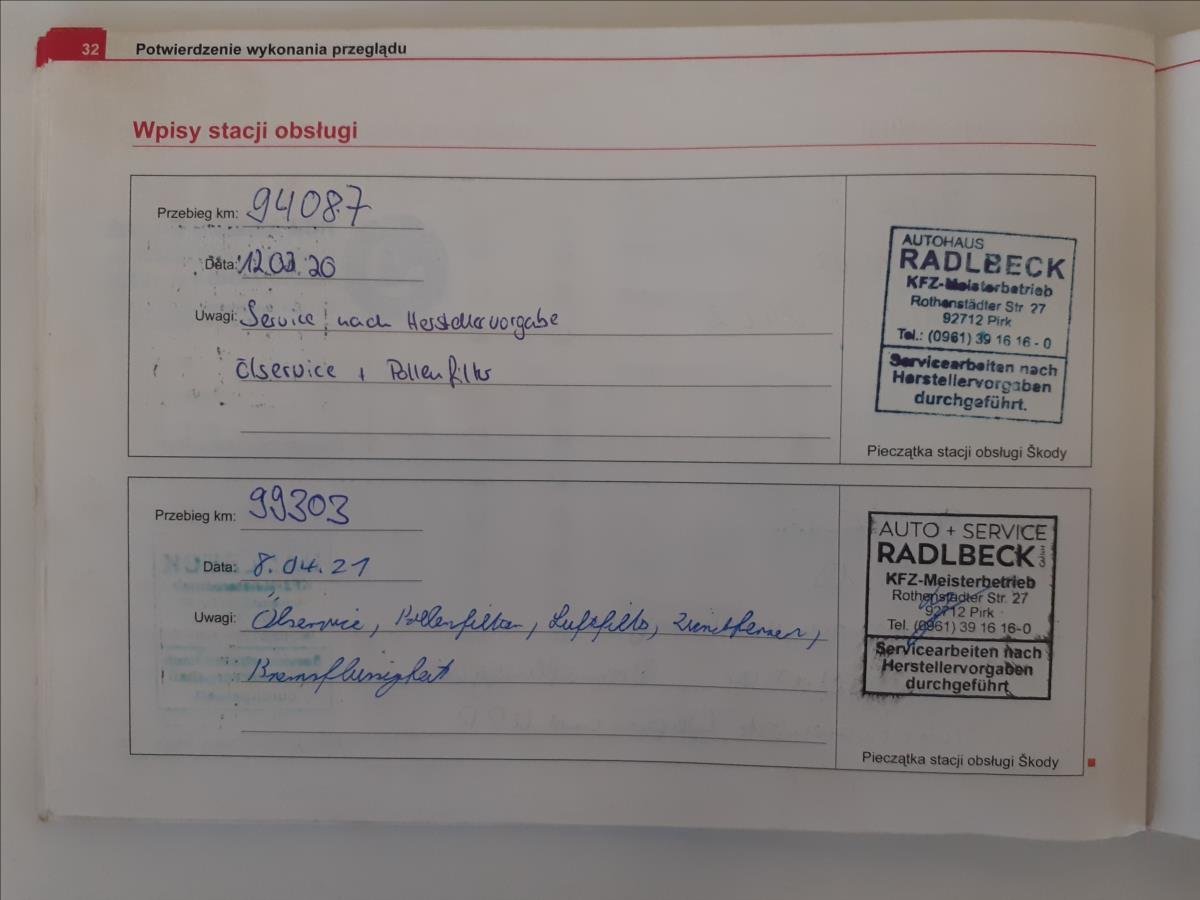 32 Potwierdzenie wykonania przeglądu
Wpisy stacji obsługi
Przebieg km: 94087
Data: 12.03.20
Uwagi: Service nach Herstellervorgabe
Ölservice + Pollenfilter
AUTOHAUS
RADLBECK
KFZ-Meisterbetrieb
Rothenstädter Str 27
92712 Pirk
Tel.: (0961) 39 16 16 - 0
Servicearbeiten nach
Herstellervorgaben
durchgeführt.
Pieczątka stacji obsługi Škody
Przebieg km: 99303
Data: 8.04.21
Uwagi: Ölservice, Pollenfilter, Luftfilter, Zündkerzen,
Bremsflüssigkeit
AUTO + SERVICE
RADLBECK
KFZ-Meisterbetrieb
Rothenstädter Str. 27
92712 Pirk
Tel. (0961) 39 16 16-0
Servicearbeiten nach
Herstellervorgaben
durchgeführt
Pieczątka stacji obsługi Škody